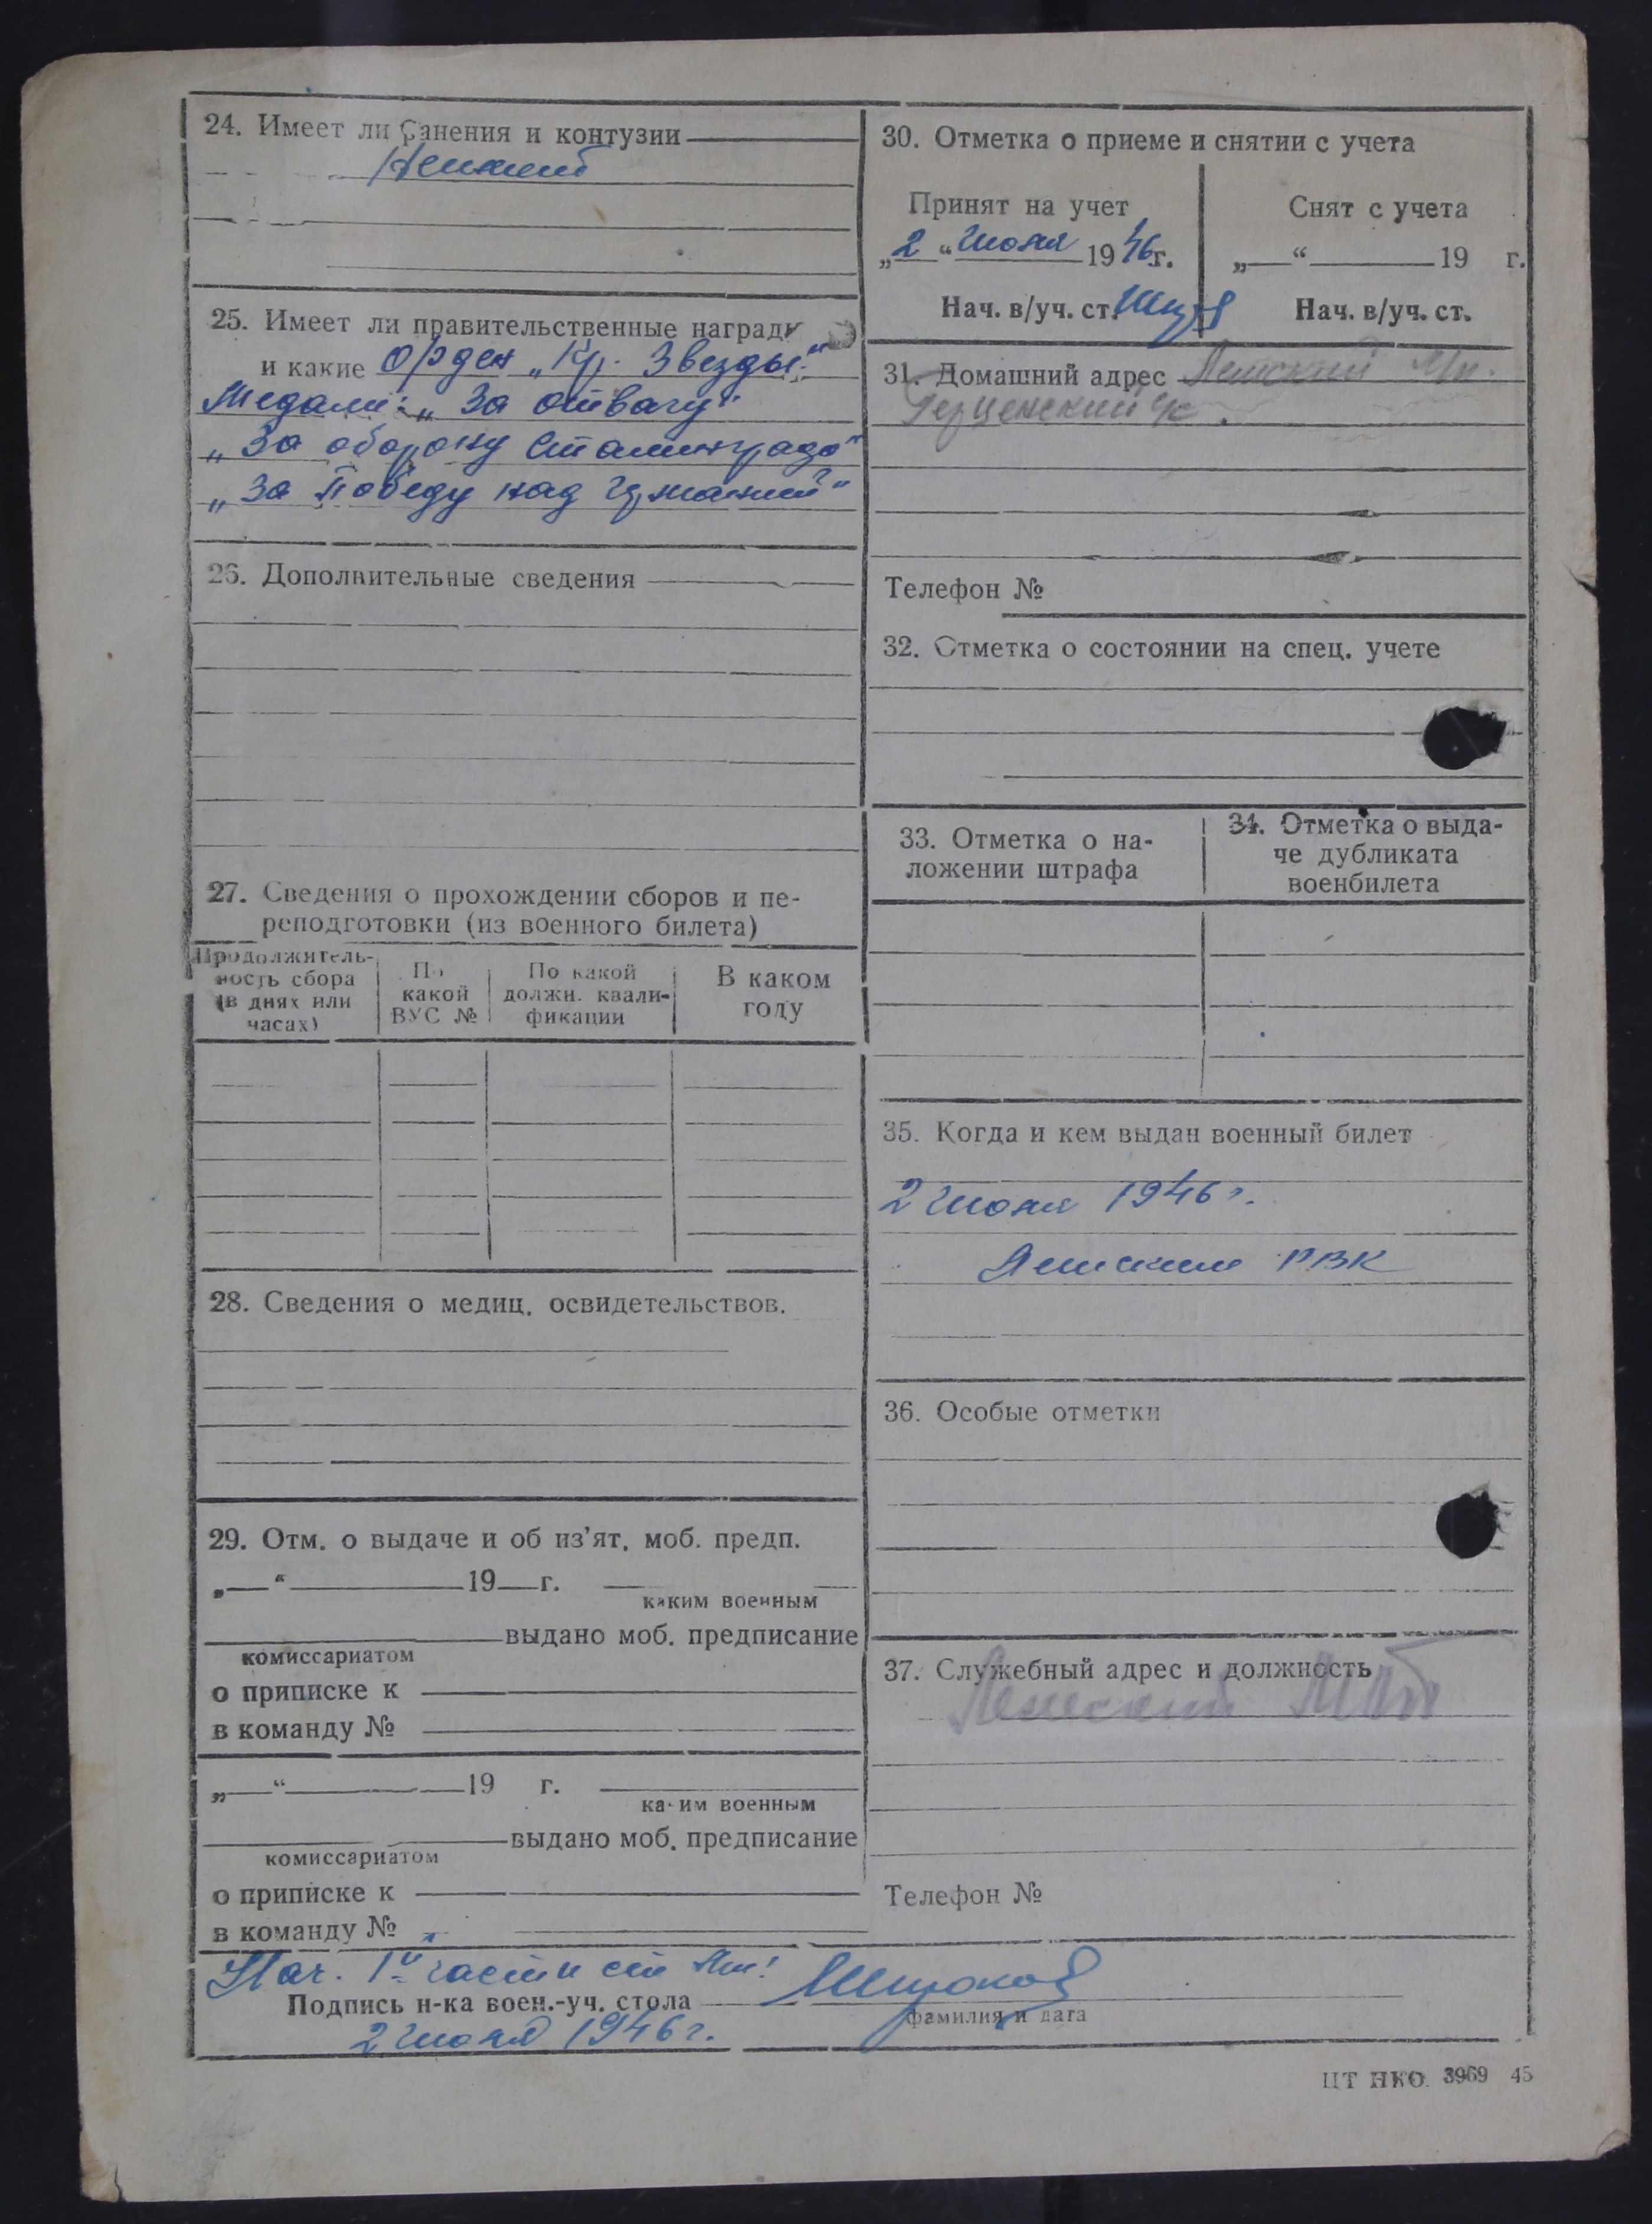 24. Имеет ли ранения и контузии
Не имеет
25. Имеет ли правительственные награды
и какие Орден „Кр. Звезды"
Медали: „За отвагу"
„За оборону Сталинграда"
„За Победу над Германией"
26. Дополнительные сведения
27. Сведения о прохождении сборов и пе-
реподготовки (из военного билета)
Продолжитель-
ность сбора
(в днях или
часах)
По
какой
ВУС №
По какой
должн. квали-
фикации
В каком
году
28. Сведения о медиц. освидетельствов.
29. Отм. о выдаче и об из'ят. моб. предп.
„ " 19 г.
каким военным
выдано моб. предписание
комиссариатом
о приписке к
в команду №
„ " 19 г.
каким военным
выдано моб. предписание
комиссариатом
о приписке к
в команду №
30. Отметка о приеме и снятии с учета
Принят на учет
„2" Июня 1946г.
Нач. в/уч. ст.
Снят с учета
„ " 19 г.
Нач. в/уч. ст.
31. Домашний адрес
Герценский
Телефон №
32. Отметка о состоянии на спец. учете
33. Отметка о на-
ложении штрафа
34. Отметка о выда-
че дубликата
военбилета
35. Когда и кем выдан военный билет
2 Июня 1946 г.
РВК
36. Особые отметки
37. Служебный адрес и должность
Телефон №
Нач. 1й части
Подпись н-ка воен.-уч. стола
Широков
фамилия и дата
2 Июня 1946 г.
ЦТ НКО 3969 45